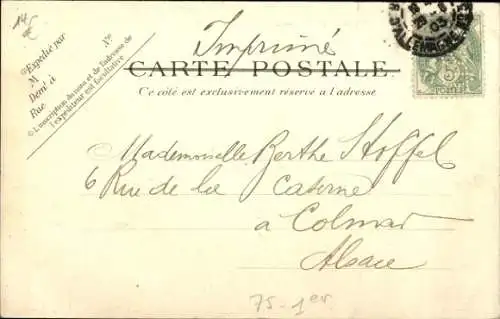 14.€
Expédié par
M
Demt à
Rue Nº
© L'inscription du nom et de l'adresse de
l'expéditeur est facultative
Imprimé
CARTE POSTALE
Ce côté est exclusivement réservé a l'adresse
R. D'ALLEMAGNE
03
5
POSTES
Mademoiselle Berthe Stoffel
6 Rue de la Caserne
à Colmar
Alsace
75-1er